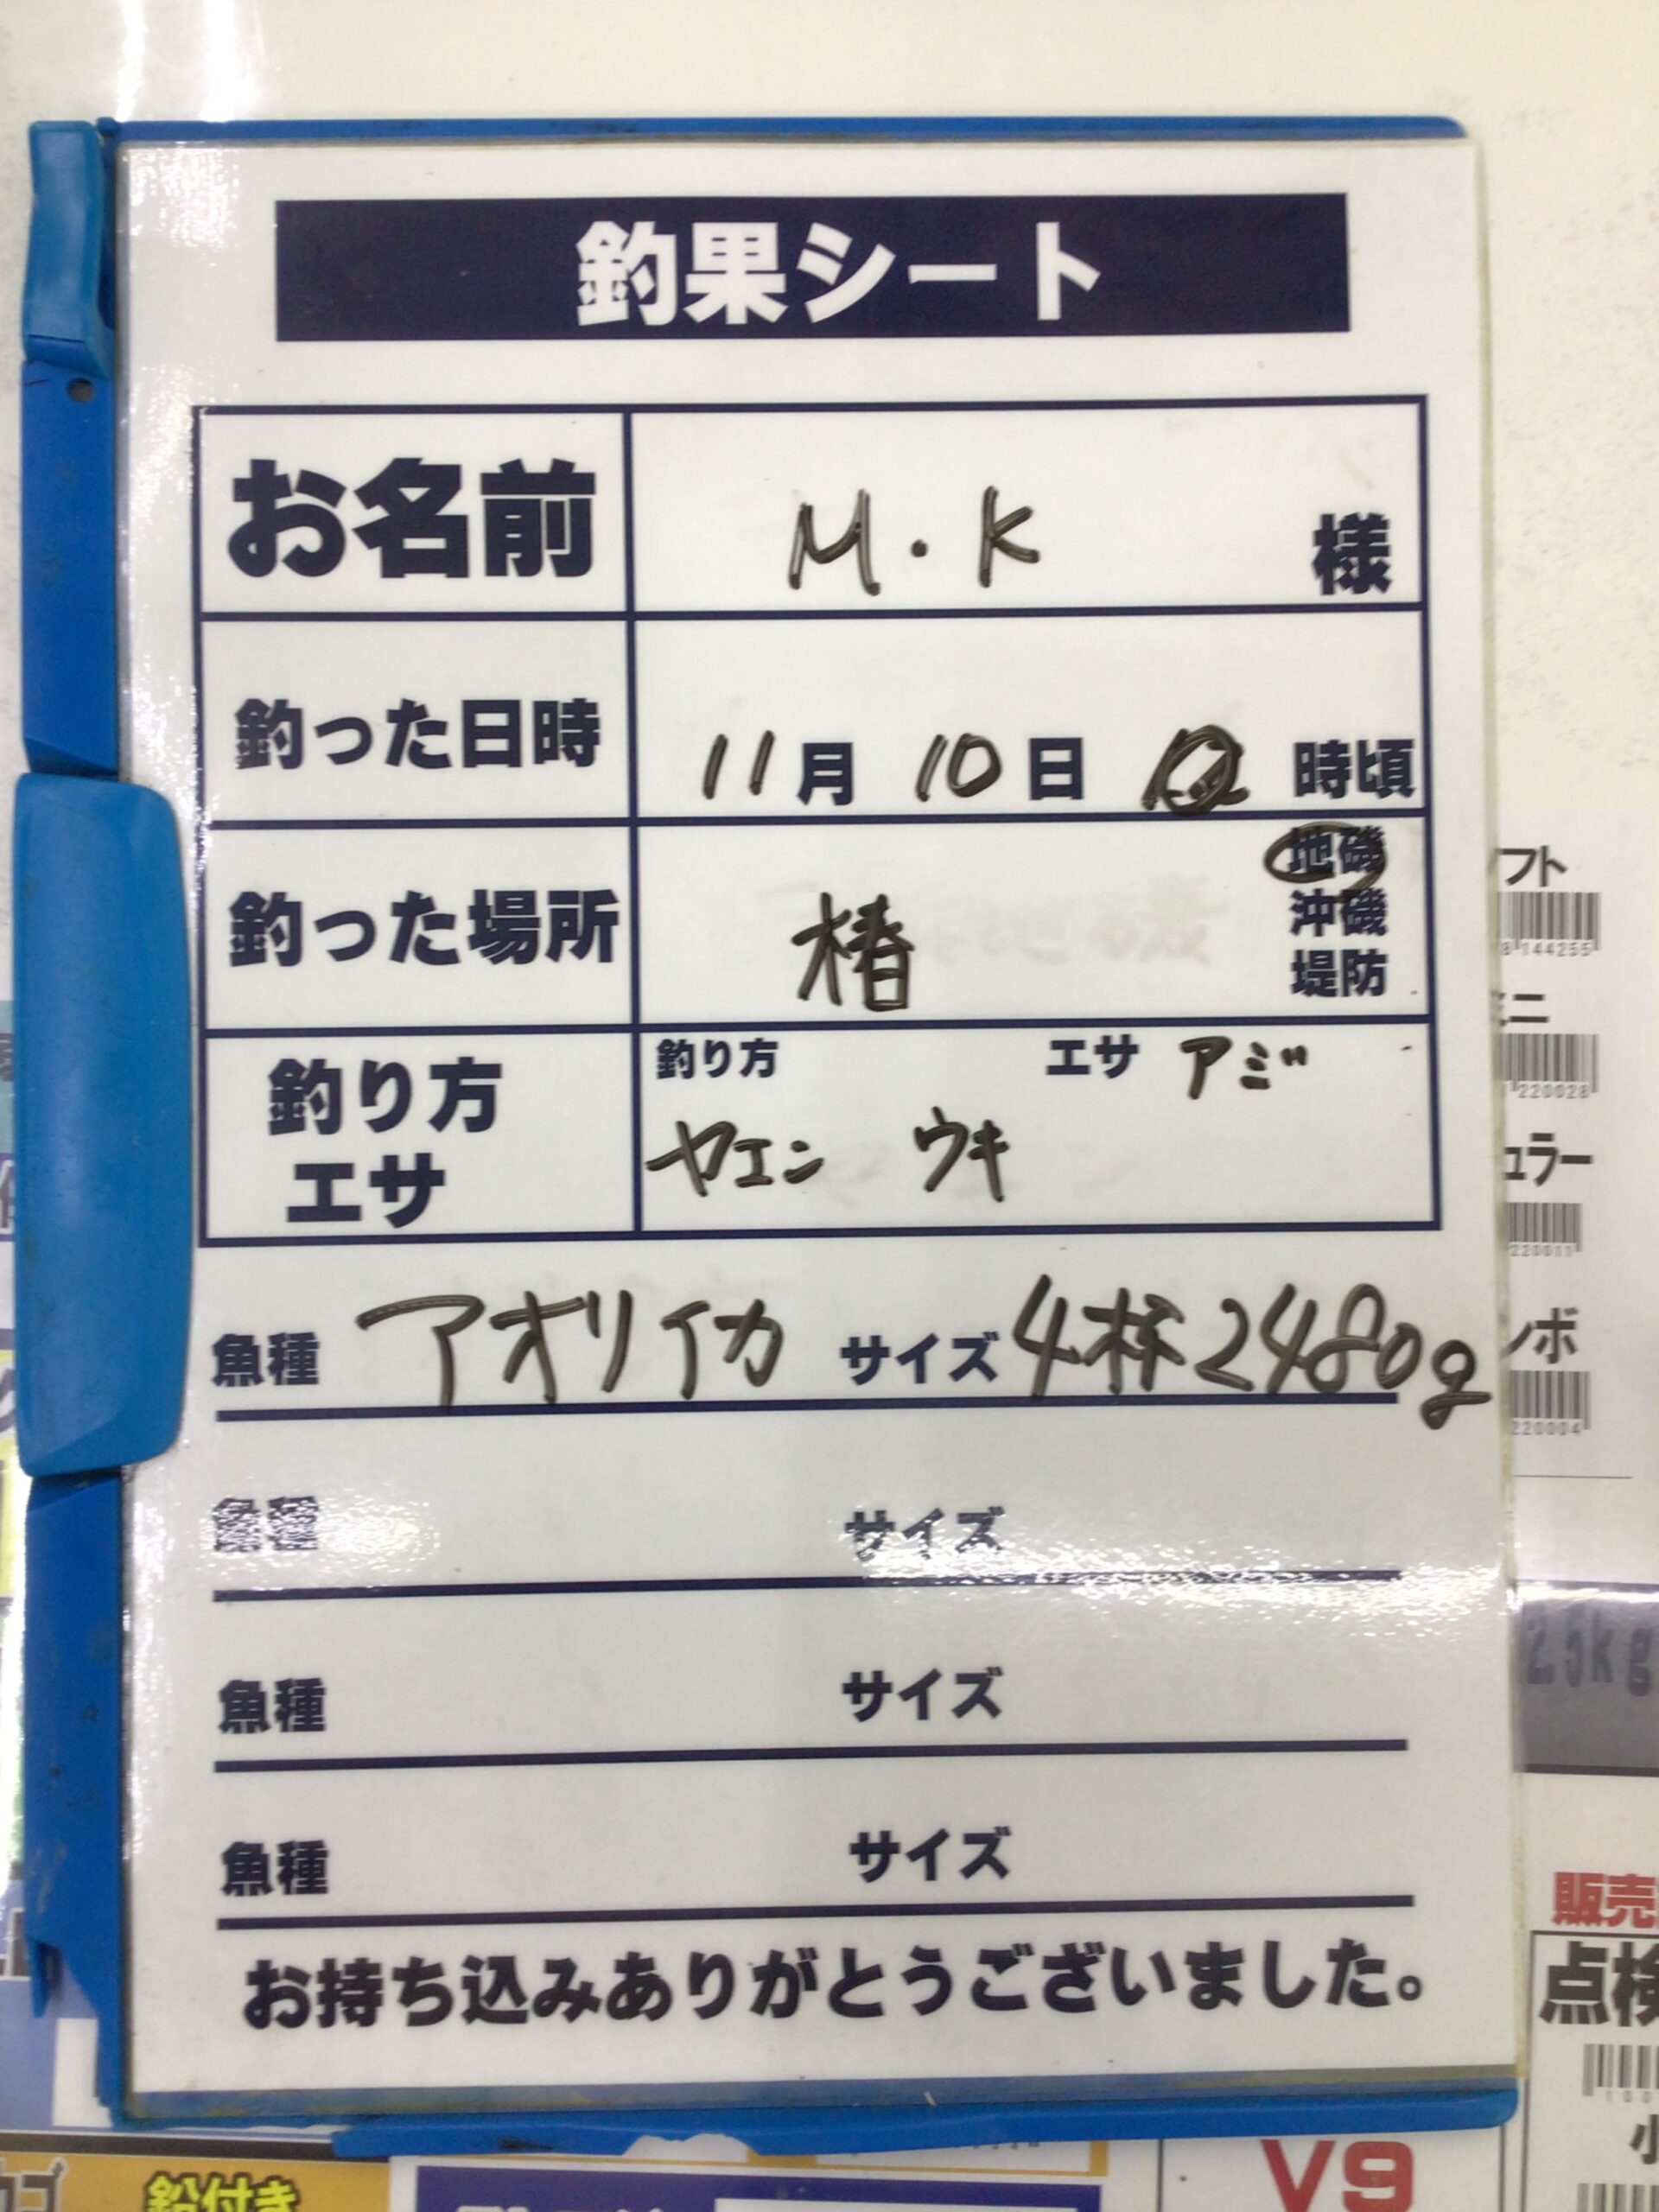 釣果シート
お名前 M・K 様
釣った日時 11月 10日 時頃
釣った場所 椿 地磯
沖磯
堤防
釣り方 エサ 釣り方 エサ アジ
ヤエン ウキ
魚種 アオリイカ サイズ 4杯 2480g
魚種 サイズ
魚種 サイズ
魚種 サイズ
お持ち込みありがとうございました。
144255
220028
ュラー
220011
ンボ
220004
2.5kg
販売
点検
小
V9
カゴ
鉛付き